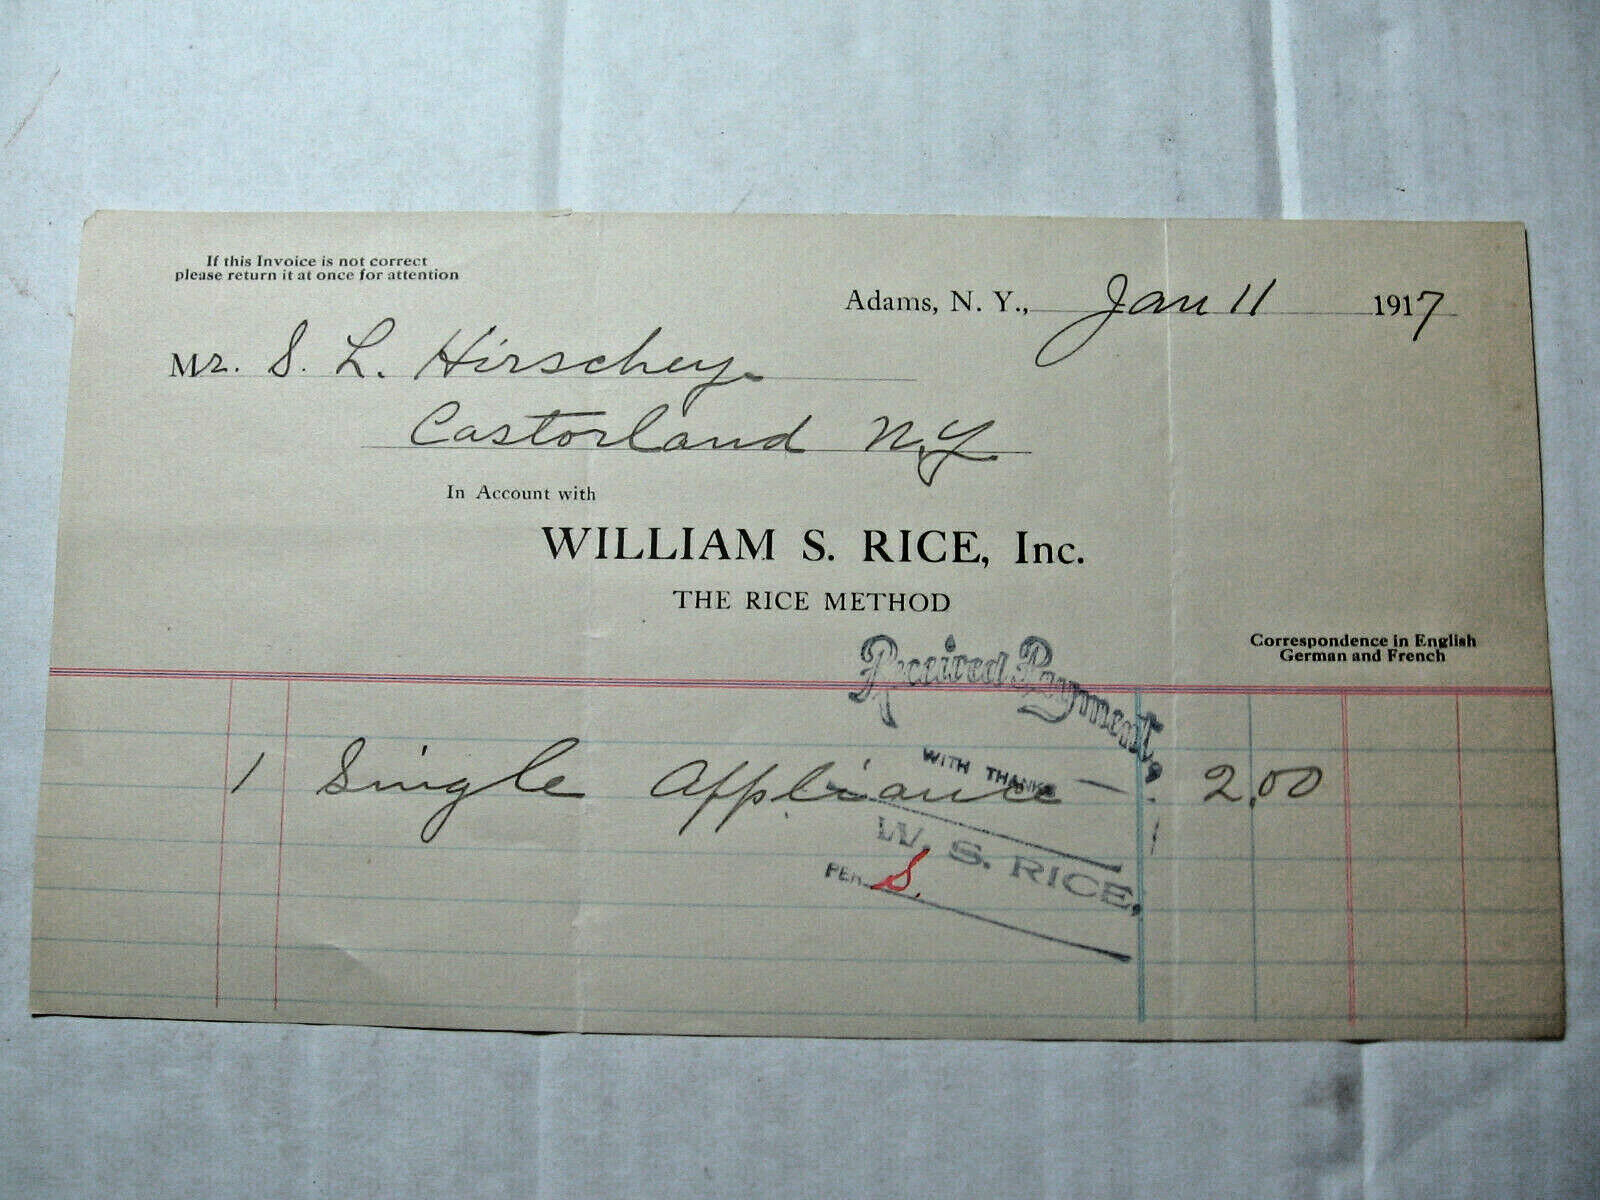 If this Invoice is not correct
please return it at once for attention
Adams, N. Y., Jan 11 1917
Mr. S. L. Hirschey
Castorland N.Y.
In Account with
WILLIAM S. RICE, Inc.
THE RICE METHOD
Correspondence in English
German and French
Received Payment,
WITH THANKS
1 Single Appliance 2.00
W. S. RICE,
PER S.